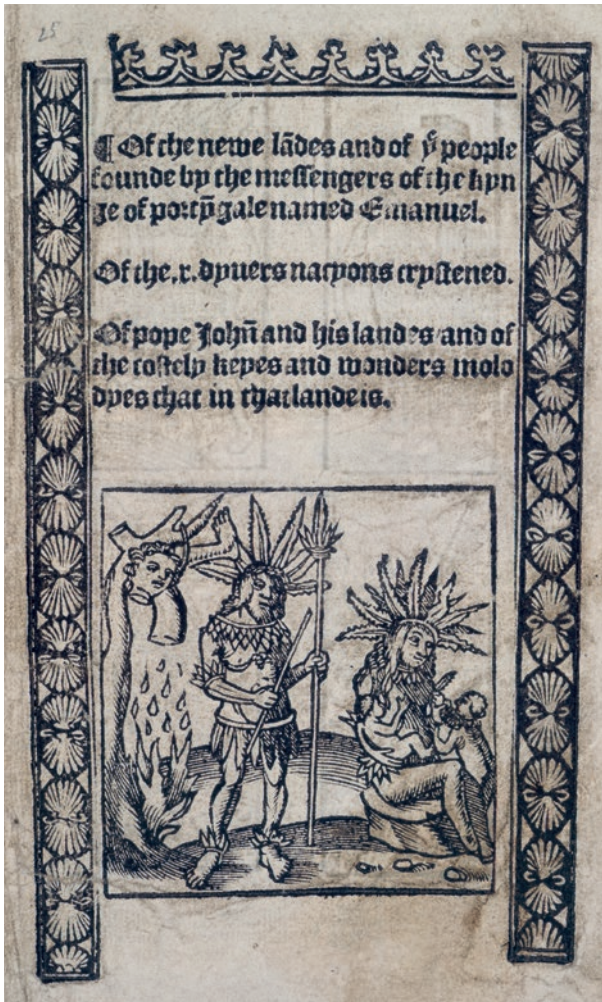 25
¶ Of the newe lãdes and of yͤ people
founde by the messengers of the kyn
ge of portỹgale named Emanuel.
Of the .x. dyuers nacyons crystened.
Of pope Joh&#x0303;n and his landes and of
the costely keyes and wonders molo
dyes that in that lande is.